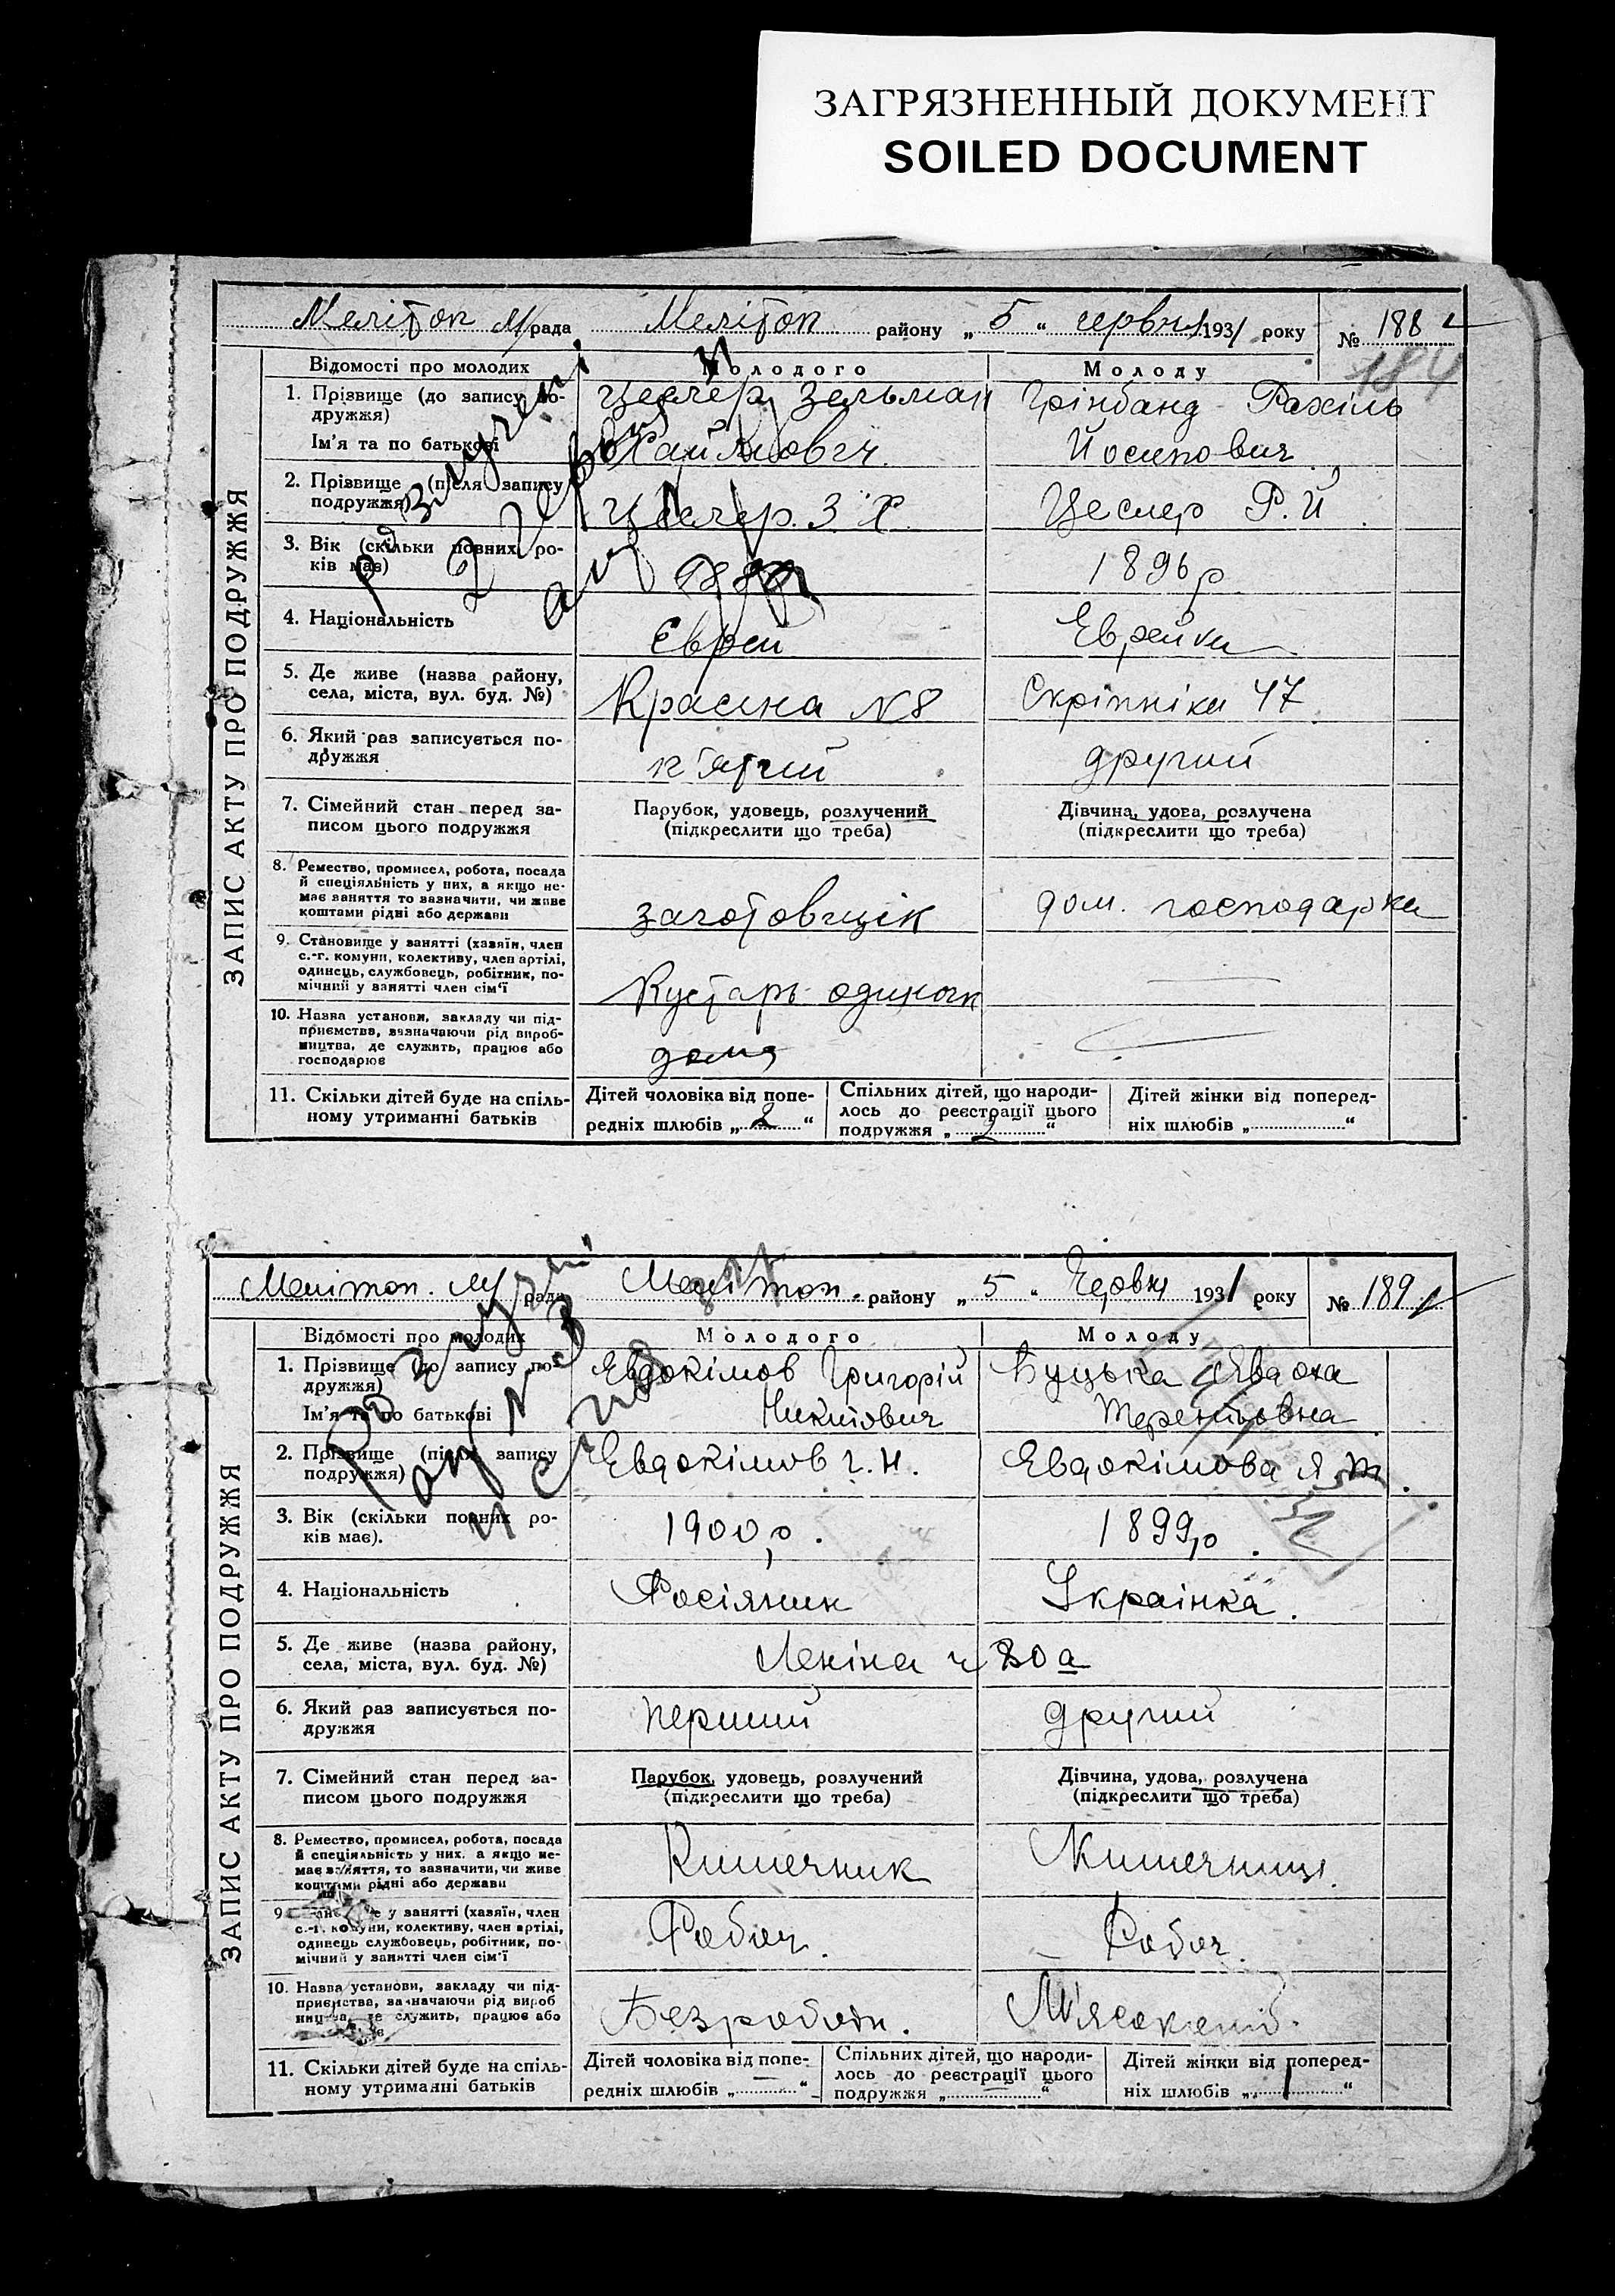 ЗАГРЯЗНЕННЫЙ ДОКУМЕНТ
SOILED DOCUMENT
Меліtоп м/рада Меліtоп району „ 5 “ червня 1931 року № 188
184
ЗАПИС АКТУ ПРО ПОДРУЖЖЯ
Відомості про молодих Молодого Молоду
1. Прізвище (до запису по-
дружжя)
Ім'я та по батькові
Цеслер Зельман
Хаймович
Грінбанд Рахіль
Йосипович
2. Прізвище (після запису
подружжя)
Цеслер З Х.
Цеслер Р. Й.
3. Вік (скільки повних ро-
ків має)
1896 р
4. Національність
Єврей
Еврейка
5. Де живе (назва району,
села, міста, вул. буд. №)
Красіна N 8
Скріпніка 47
6. Який раз записується по-
дружжя
п'ятий
другий
7. Сімейний стан перед за-
писом цього подружжя
Парубок, удовець, розлучений
(підкреслити що треба)
Дівчина, удова, розлучена
(підкреслити що треба)
8. Ремество, промисел, робота, посада
й спеціяльність у них, а якщо не-
має заняття то зазначити, чи живе
коштами рідні або держави
заготовщік
дом. господарка
9. Становище у занятті (хазяїн, член
с.-г. комуни, колективу, член артілі,
одинець, службовець, робітник, по-
мічний у занятті член сім'ї
Кустарь одиночк
10. Назва установи, закладу чи під-
приємства, зазначаючи рід вироб-
ництва, де служить, працює або
господарює
дома
11. Скільки дітей буде на спіль-
ному утриманні батьків
Дітей чоловіка від попе-
редніх шлюбів „ 2 “
Спільних дітей, що народи-
лось до реєстрації цього
подружжя „ 2 “
Дітей жінки від поперед-
ніх шлюбів „ “
Розлучені
Меліtоп. м/рада Меліtоп. району „ 5 “ Червня 1931 року № 189
ЗАПИС АКТУ ПРО ПОДРУЖЖЯ
Відомості про молодих Молодого Молоду
1. Прізвище (до запису по-
дружжя)
Ім'я та по батькові
Евдокімов Григорій
Никитович
Буцька
Терентьовна
2. Прізвище (після запису
подружжя)
Евдокімов Г. Н.
Евдокімова Я Т.
3. Вік (скільки повних ро-
ків має).
1900 р.
1899 р.
4. Національність
Росіянин
Українка.
5. Де живе (назва району,
села, міста, вул. буд. №)
Леніна ч 80 а
6. Який раз записується по-
дружжя
перший
другий
7. Сімейний стан перед за-
писом цього подружжя
Парубок, удовець, розлучений
(підкреслити що треба)
Дівчина, удова, розлучена
(підкреслити що треба)
8. Ремество, промисел, робота, посада
й спеціяльність у них. а якщо не-
має заняття, то зазначити, чи живе
коштами рідні або держави
Кишечник
Кишечниця.
9. у занятті (хазяїн, член
с.-г. комуни, колективу, член артілі,
одинець службовець, робітник, по-
мічний у занятті член сім'ї
Робоч.
Робоч.
10. Назва установи, закладу чи під-
приємства, зазначаючи рід вироб
ництва, де служить, працює або
Безробітн.
11. Скільки дітей буде на спіль-
ному утриманні батьків
Дітей чоловіка від попе-
редніх шлюбів „ — “
Спільних дітей, що народи-
лось до реєстрації цього
подружжя „ — “
Дітей жінки від поперед-
ніх шлюбів „ 1 “